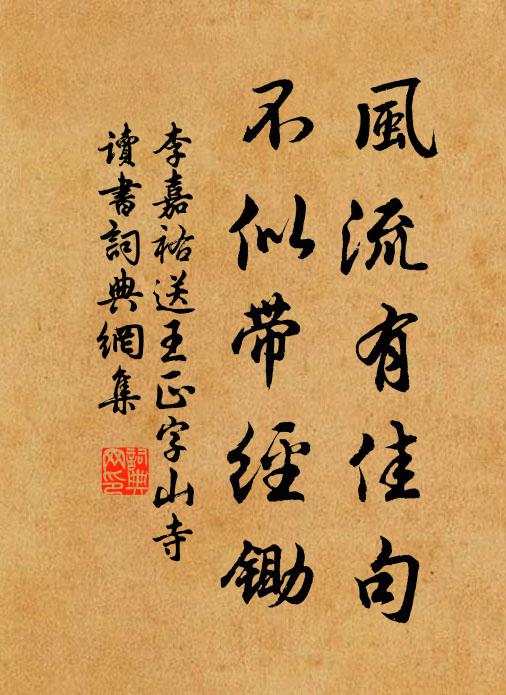 風流有佳句
不似带經鋤
李嘉祐送王正字山寺
讀書詞典網集
詞典網印